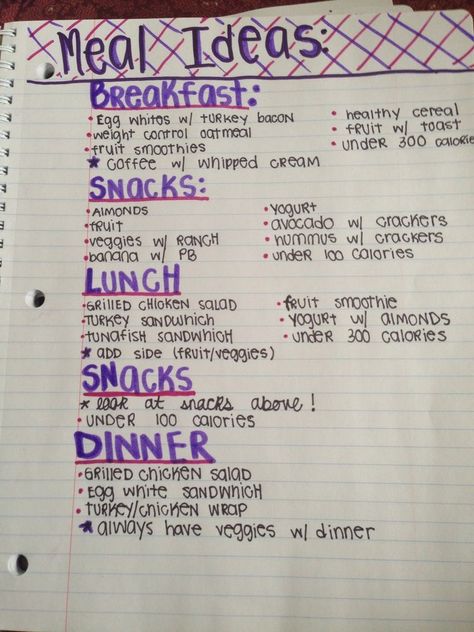 Meal Ideas:
BREAKFAST:
• Egg whites w/ turkey bacon
• weight control oatmeal
• fruit smoothies
* coffee w/ whipped cream
• healthy cereal
• fruit w/ toast
• under 300 calorie
SNACKS:
• ALMONDS
• fruit
• veggies w/ RANCH
• banana w/ PB
• YOGURT
• avocado w/ crackers
• hummus w/ crackers
• under 100 calories
LUNCH
• GRILLED CHICKEN SALAD
• TURKEY SANDWHICH
• TUNAFISH SANDWHICH
* ADD SIDE (fruit/veggies)
• fruit smoothie
• YOGURT w/ ALMONDS
• under 300 calories
SNACKS
* look at snacks above!
• UNDER 100 CALORIES
DINNER
• GRILLED CHICKEN SALAD
• Egg white SANDWHICH
• TURKEY/CHICKEN WRAP
* always have veggies w/ dinner